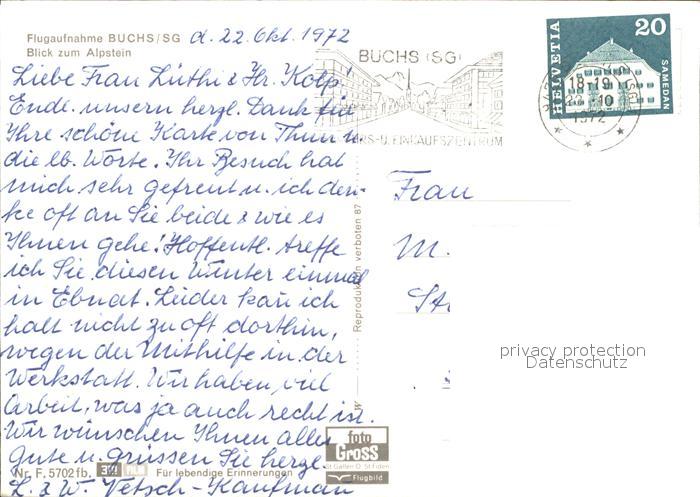 Flugaufnahme BUCHS/SG
Blick zum Alpstein
d. 22. Okt. 1972
Liebe Frau Lüthi & Hr. Kolp!
Endl. unsern herzl. Dank für
Ihre schöne Karte von Thun u.
die lb. Worte. Ihr Besuch hat
mich sehr gefreut u. ich den-
ke oft an Sie beide & wie es
Ihnen gehe! Hoffentl. treffe
ich Sie diesen Winter einmal
in Ebnat. Leider kan ich
halt nicht zu oft dorthin,
wegen der Mithilfe in der
Werkstatt. Wir haben viel
Arbeit, was ja auch recht ist.
Wir wünschen Ihnen alles
Gute u. grüssen Sie herzl.
L. & W. Vetsch-Kaufman
Nr. F. 5702 fb.
Für lebendige Erinnerungen
Reproduktion verboten 87
foto
Gross
St Gallen O. St Fiden
Flugbild
BUCHS (SG)
RS-U. EINKAUFSZENTRUM
18-19
10
1972
HELVETIA
20
SAMEDAN
Frau
M.
St
privacy protection
Datenschutz